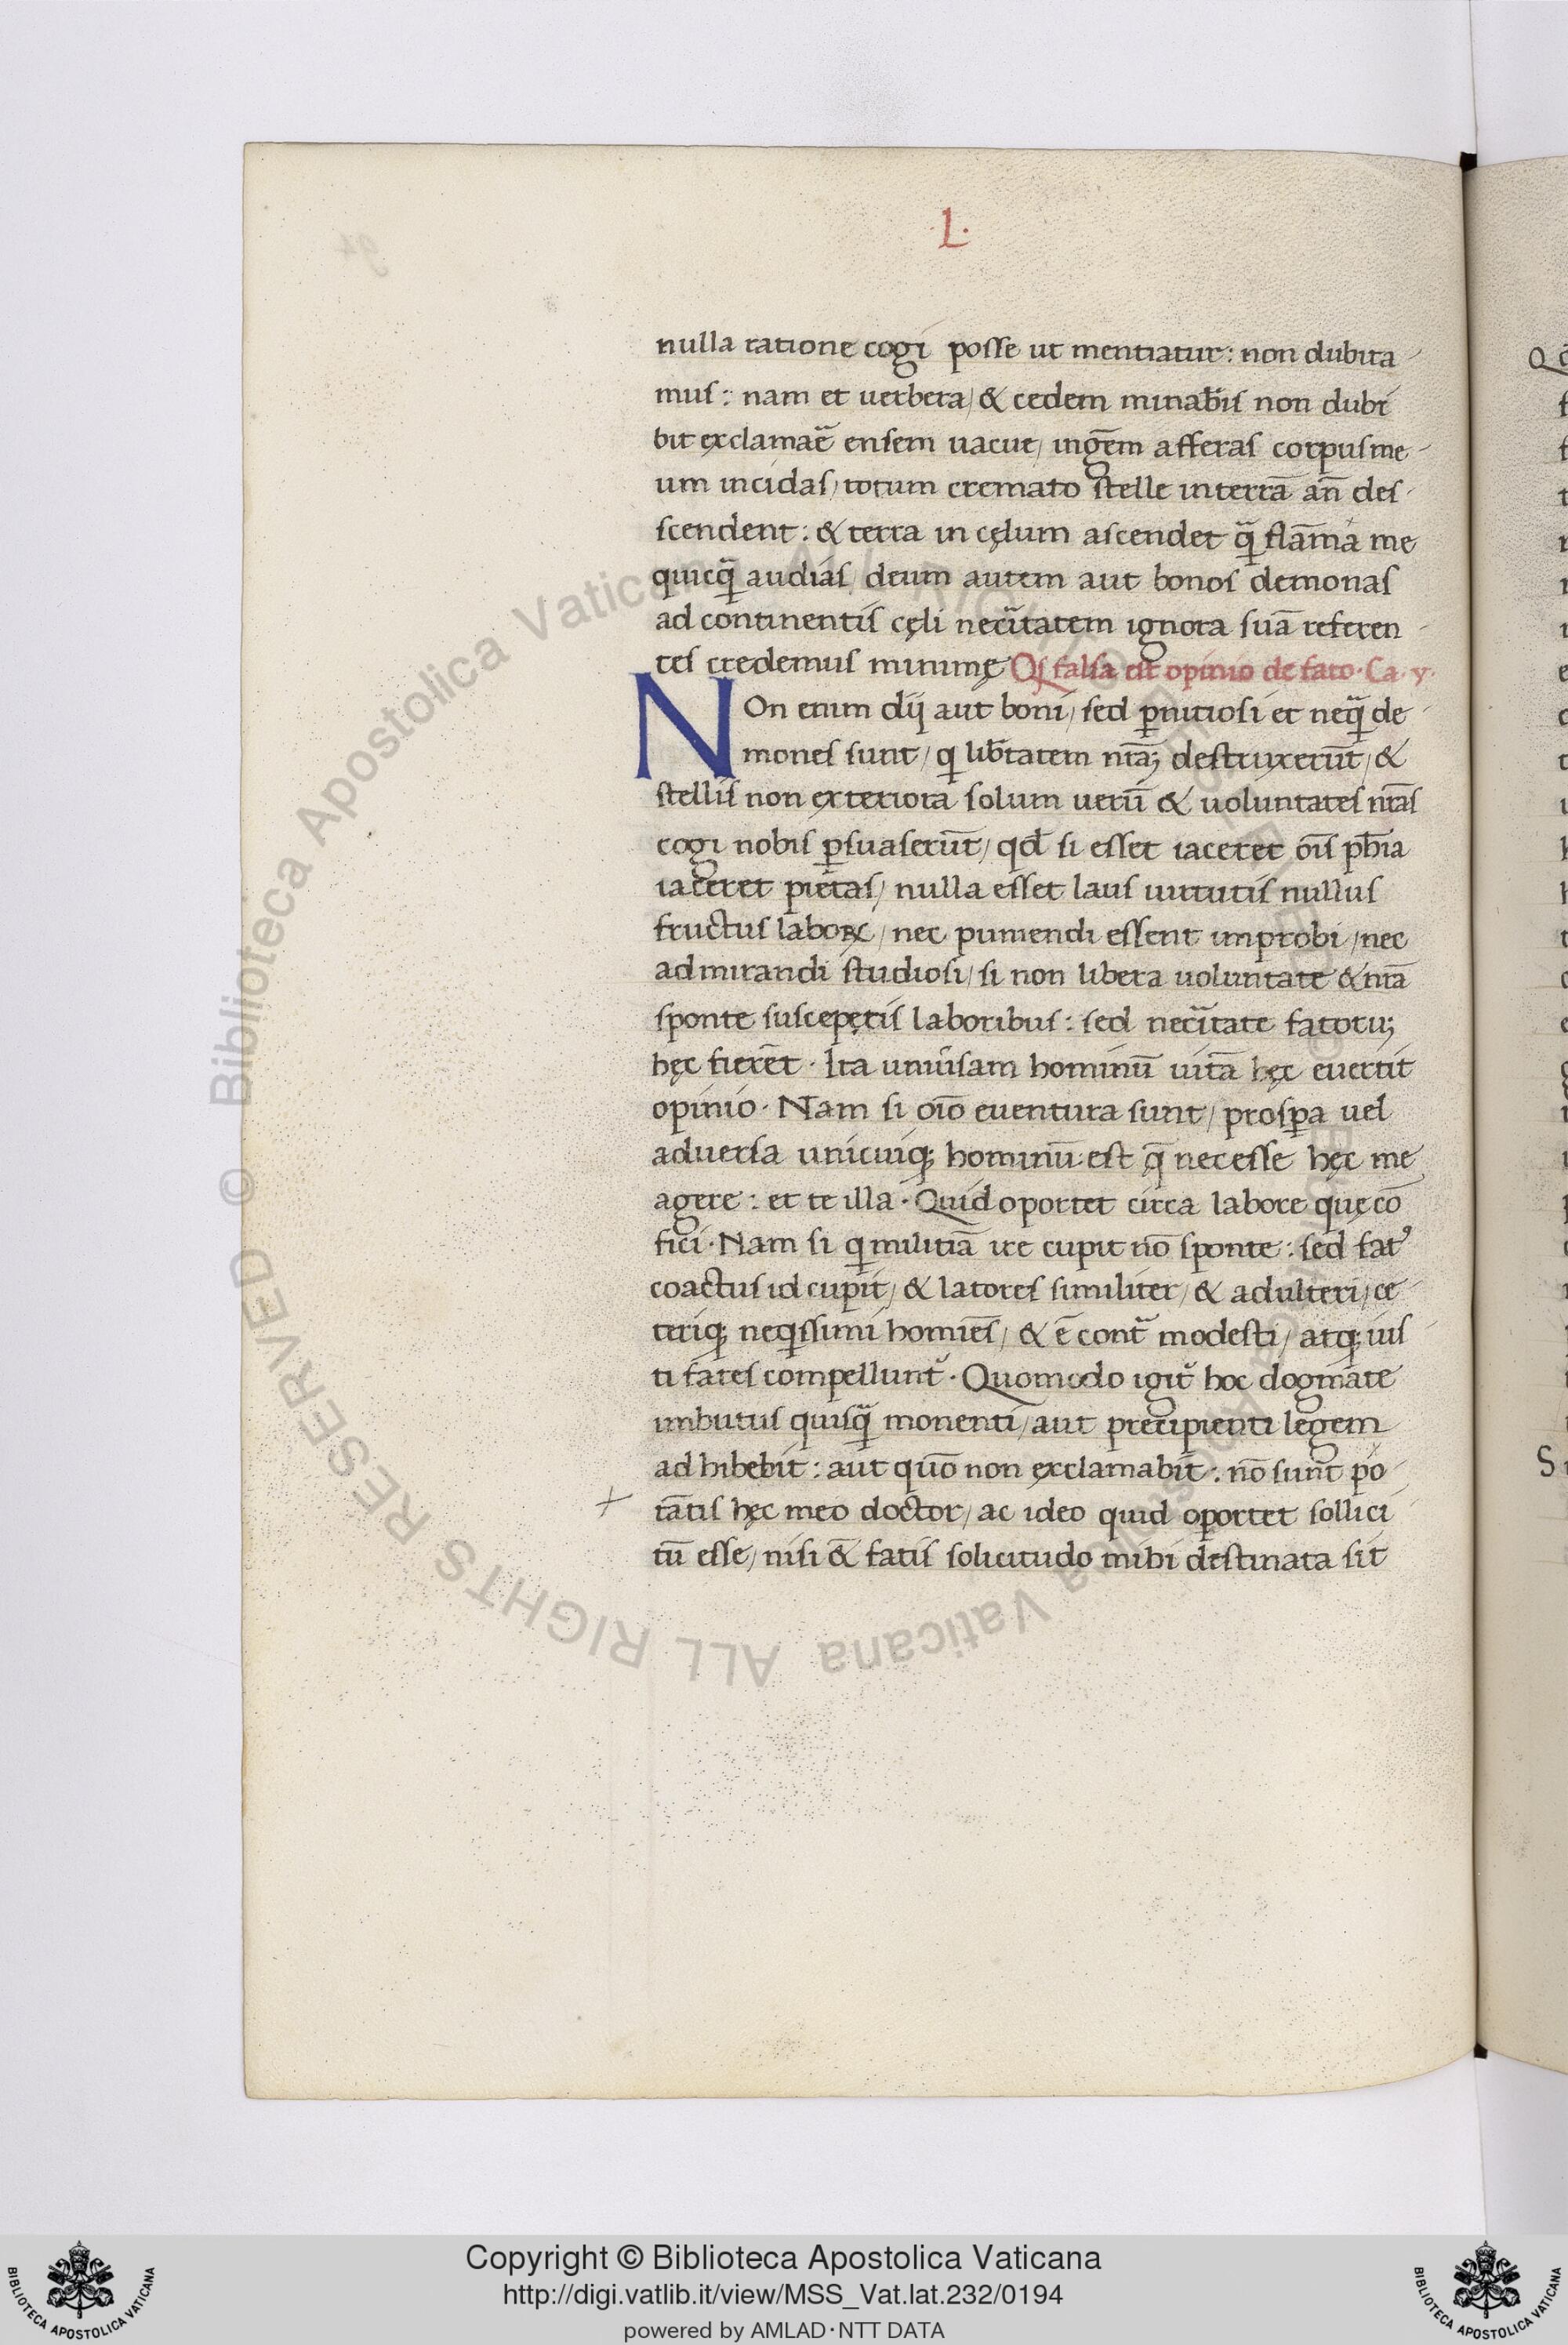 L.
nulla ratione cogi posse ut mentiatur: non dubita
mus: nam et uerbera/ & cedem minab̄is non dubi
bit exclamar̄e ensem uacue/ ingēm afferas corpus me
um incidas/ totum cremato stelle in terrā an̄ des
scendent: & terra in cęlum ascendet q̄ flām̄a me
quicq̄ audias/ deum autem aut bonos demonas
ad continentis cęli nec̄itatem ignora suā referen
tes credemus minimę Qƺ falsa est opinio de fato. Ca. v.
NOn enim dij aut boni/ sed ꝑnitiosi et neq̄ de
mones sunt/ q lib̄tatem nrāꝫ destruxerūt/ &
stellis non exteriora solum uerū & uoluntates nrās
cogi nobis ꝑsuaserūt/ qd̄ si esset iaceret ōis ph̄ia
iaceret pietas/ nulla esset laus uirtutis nullus
fructus laboꝝ/ nec puniendi essent improbi/ nec
admirandi studiosi/ si non libera uoluntate & nrā
sponte suscepętis laboribus: sed nec̄itate fatoruꝫ
hęc fierēt. Ita univ̄sam hominū uitā hęc euertit
opinio. Nam si oīo euentura sunt/ prosꝑa uel
aduersa unicuiqꝫ hominū est q̄ necesse hęc me
agere: et te illa. Quid oportet circa labore quę cō
fici. Nam si q militiā ire cupit nō sponte: sed fatꝰ
coactus id cupit/ & latores similiter/ & adulteri/ ce
teriqꝫ neqissimi homiēs/ & ē cont̄ modesti/ atqꝫ ius
ti fates compellunt̄. Quomodo igit̄ hoc dogmate
imbutus quisq̄ monenti/ aut precipienti legem
ad hibebit: aut quō non exclamabit: nō sunt̄ po
tātis hęc meo doctor/ ac ideo quid oportet sollici
tū esse/ nisi & fatis solicitudo mihi destinata sit
Copyright © Biblioteca Apostolica Vaticana
http://digi.vatlib.it/view/MSS_Vat.lat.232/0194
powered by AMLAD·NTT DATA